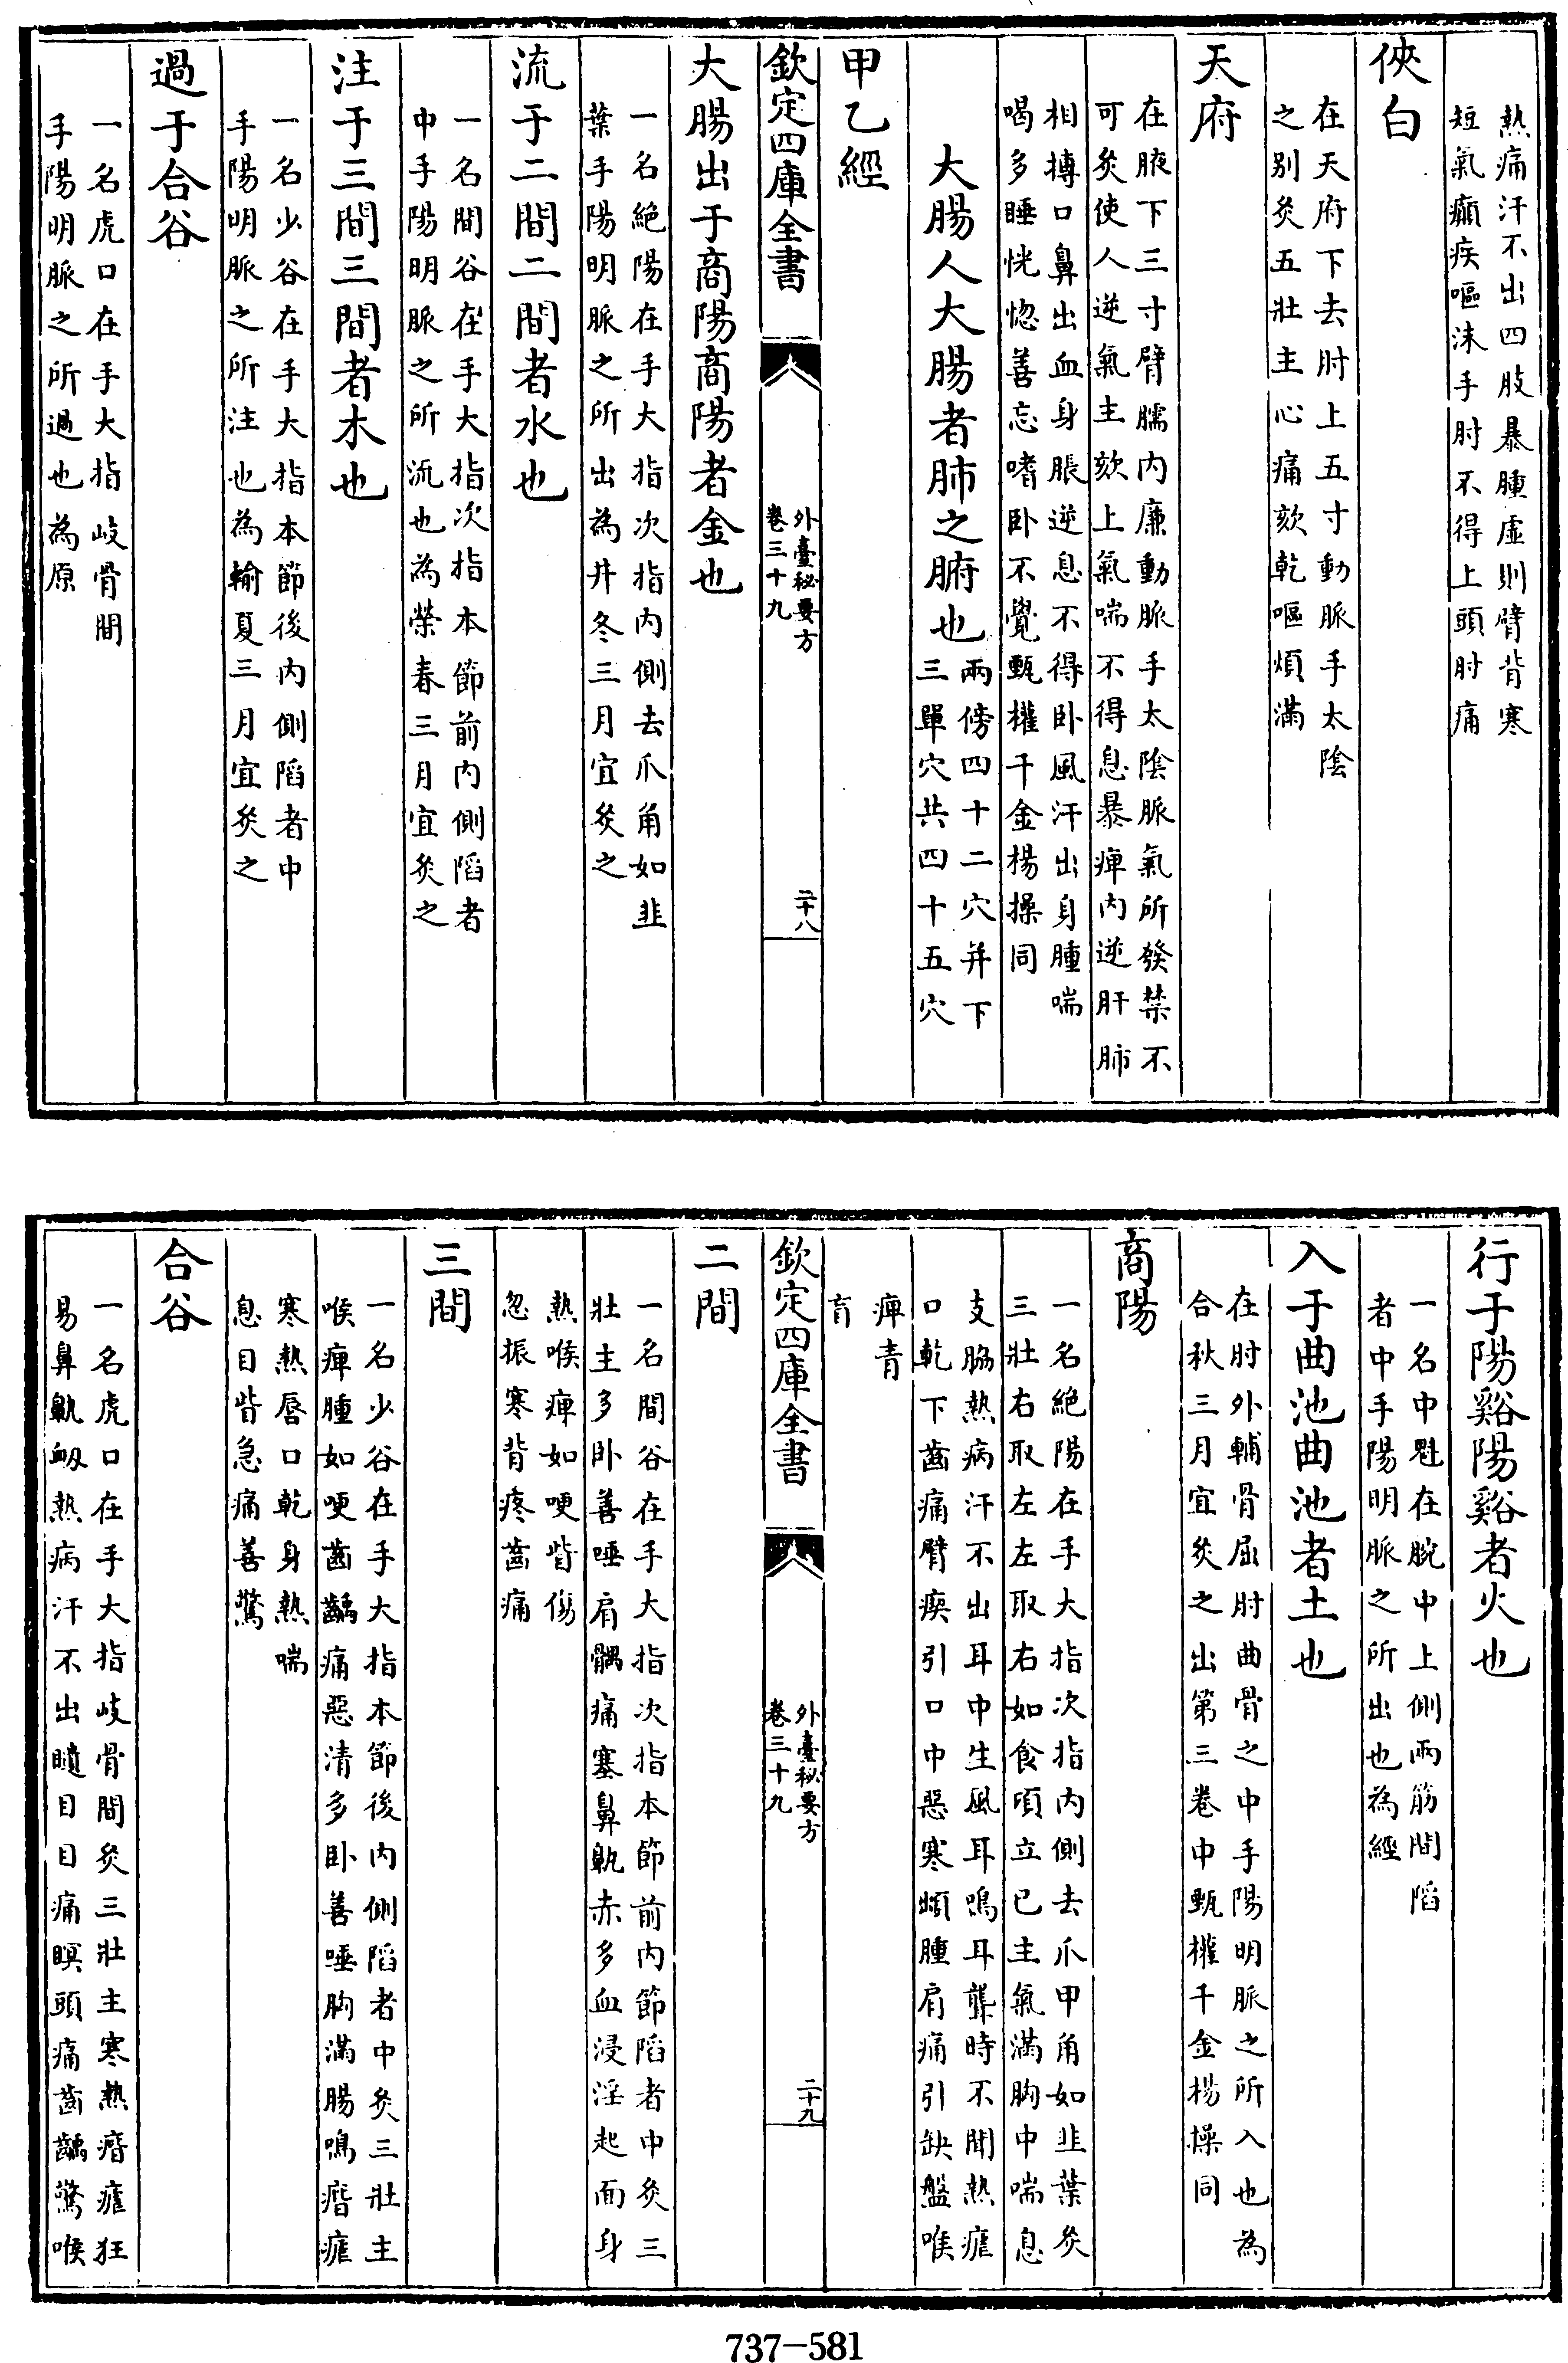 熱痛汗不出四肢暴腫虛則臂背寒
短氣癲疾嘔沫手肘不得上頭肘痛
俠白
在天府下去肘上五寸動脈手太陰
之別灸五壯主心痛欬乾嘔煩滿
天府
在腋下三寸臂臑内廉動脈手太陰脈氣所發禁不
可灸使人逆氣主欬上氣喘不得息暴痺内逆肝肺
相搏口鼻出血身脹逆息不得卧風汗出身腫喘
喝多睡恍惚善忘嗜卧不覺甄權千金楊操同
大腸人大腸者肺之腑也
兩傍四十二穴并下
三單穴共四十五穴
甲乙經
欽定四庫全書
外臺秘要方
卷三十九
二十八
大腸出于商陽商陽者金也
一名絕陽在手大指次指内側去爪角如韭
葉手陽明脈之所出為井冬三月宜灸之
流于二間二間者水也
一名間谷在手大指次指本節前内側陷者
中手陽明脈之所流也為滎春三月宜灸之
注于三間三間者木也
一名少谷在手大指本節後内側陷者中
手陽明脈之所注也為輸夏三月宜灸之
過于合谷
一名虎口在手大指歧骨間
手陽明脈之所過也為原
行于陽谿陽谿者火也
一名中魁在腕中上側兩筋間陷
者中手陽明脈之所出也為經
入于曲池曲池者土也
在肘外輔骨屈肘曲骨之中手陽明脈之所入也為
合秋三月宜灸之出第三卷中甄權千金楊操同
商陽
一名絕陽在手大指次指内側去爪甲角如韭葉灸
三壯右取左左取右如食頃立已主氣滿胸中喘息
支脇熱病汗不出耳中生風耳鳴耳聾時不聞熱瘧
口乾下齒痛臂瘈引口中惡寒䪼腫肩痛引缺盤喉
痺青
盲
欽定四庫全書
外臺秘要方
卷三十九
二十九
二間
一名間谷在手大指次指本節前内節陷者中灸三
壯主多卧善唾肩髃痛塞鼻鼽赤多血浸淫起面身
熱喉痺如哽眥傷
忽振寒背疼齒痛
三間
一名少谷在手大指本節後内側陷者中灸三壯主
喉痺腫如哽齒齲痛惡清多卧善唾胸滿腸鳴痎瘧
寒熱唇口乾身熱喘
息目眥急痛善驚
合谷
一名虎口在手大指歧骨間灸三壯主寒熱痎瘧狂
易鼻鼽衂熱病汗不出䁾目目痛瞑頭痛齒齲驚喉
737-581